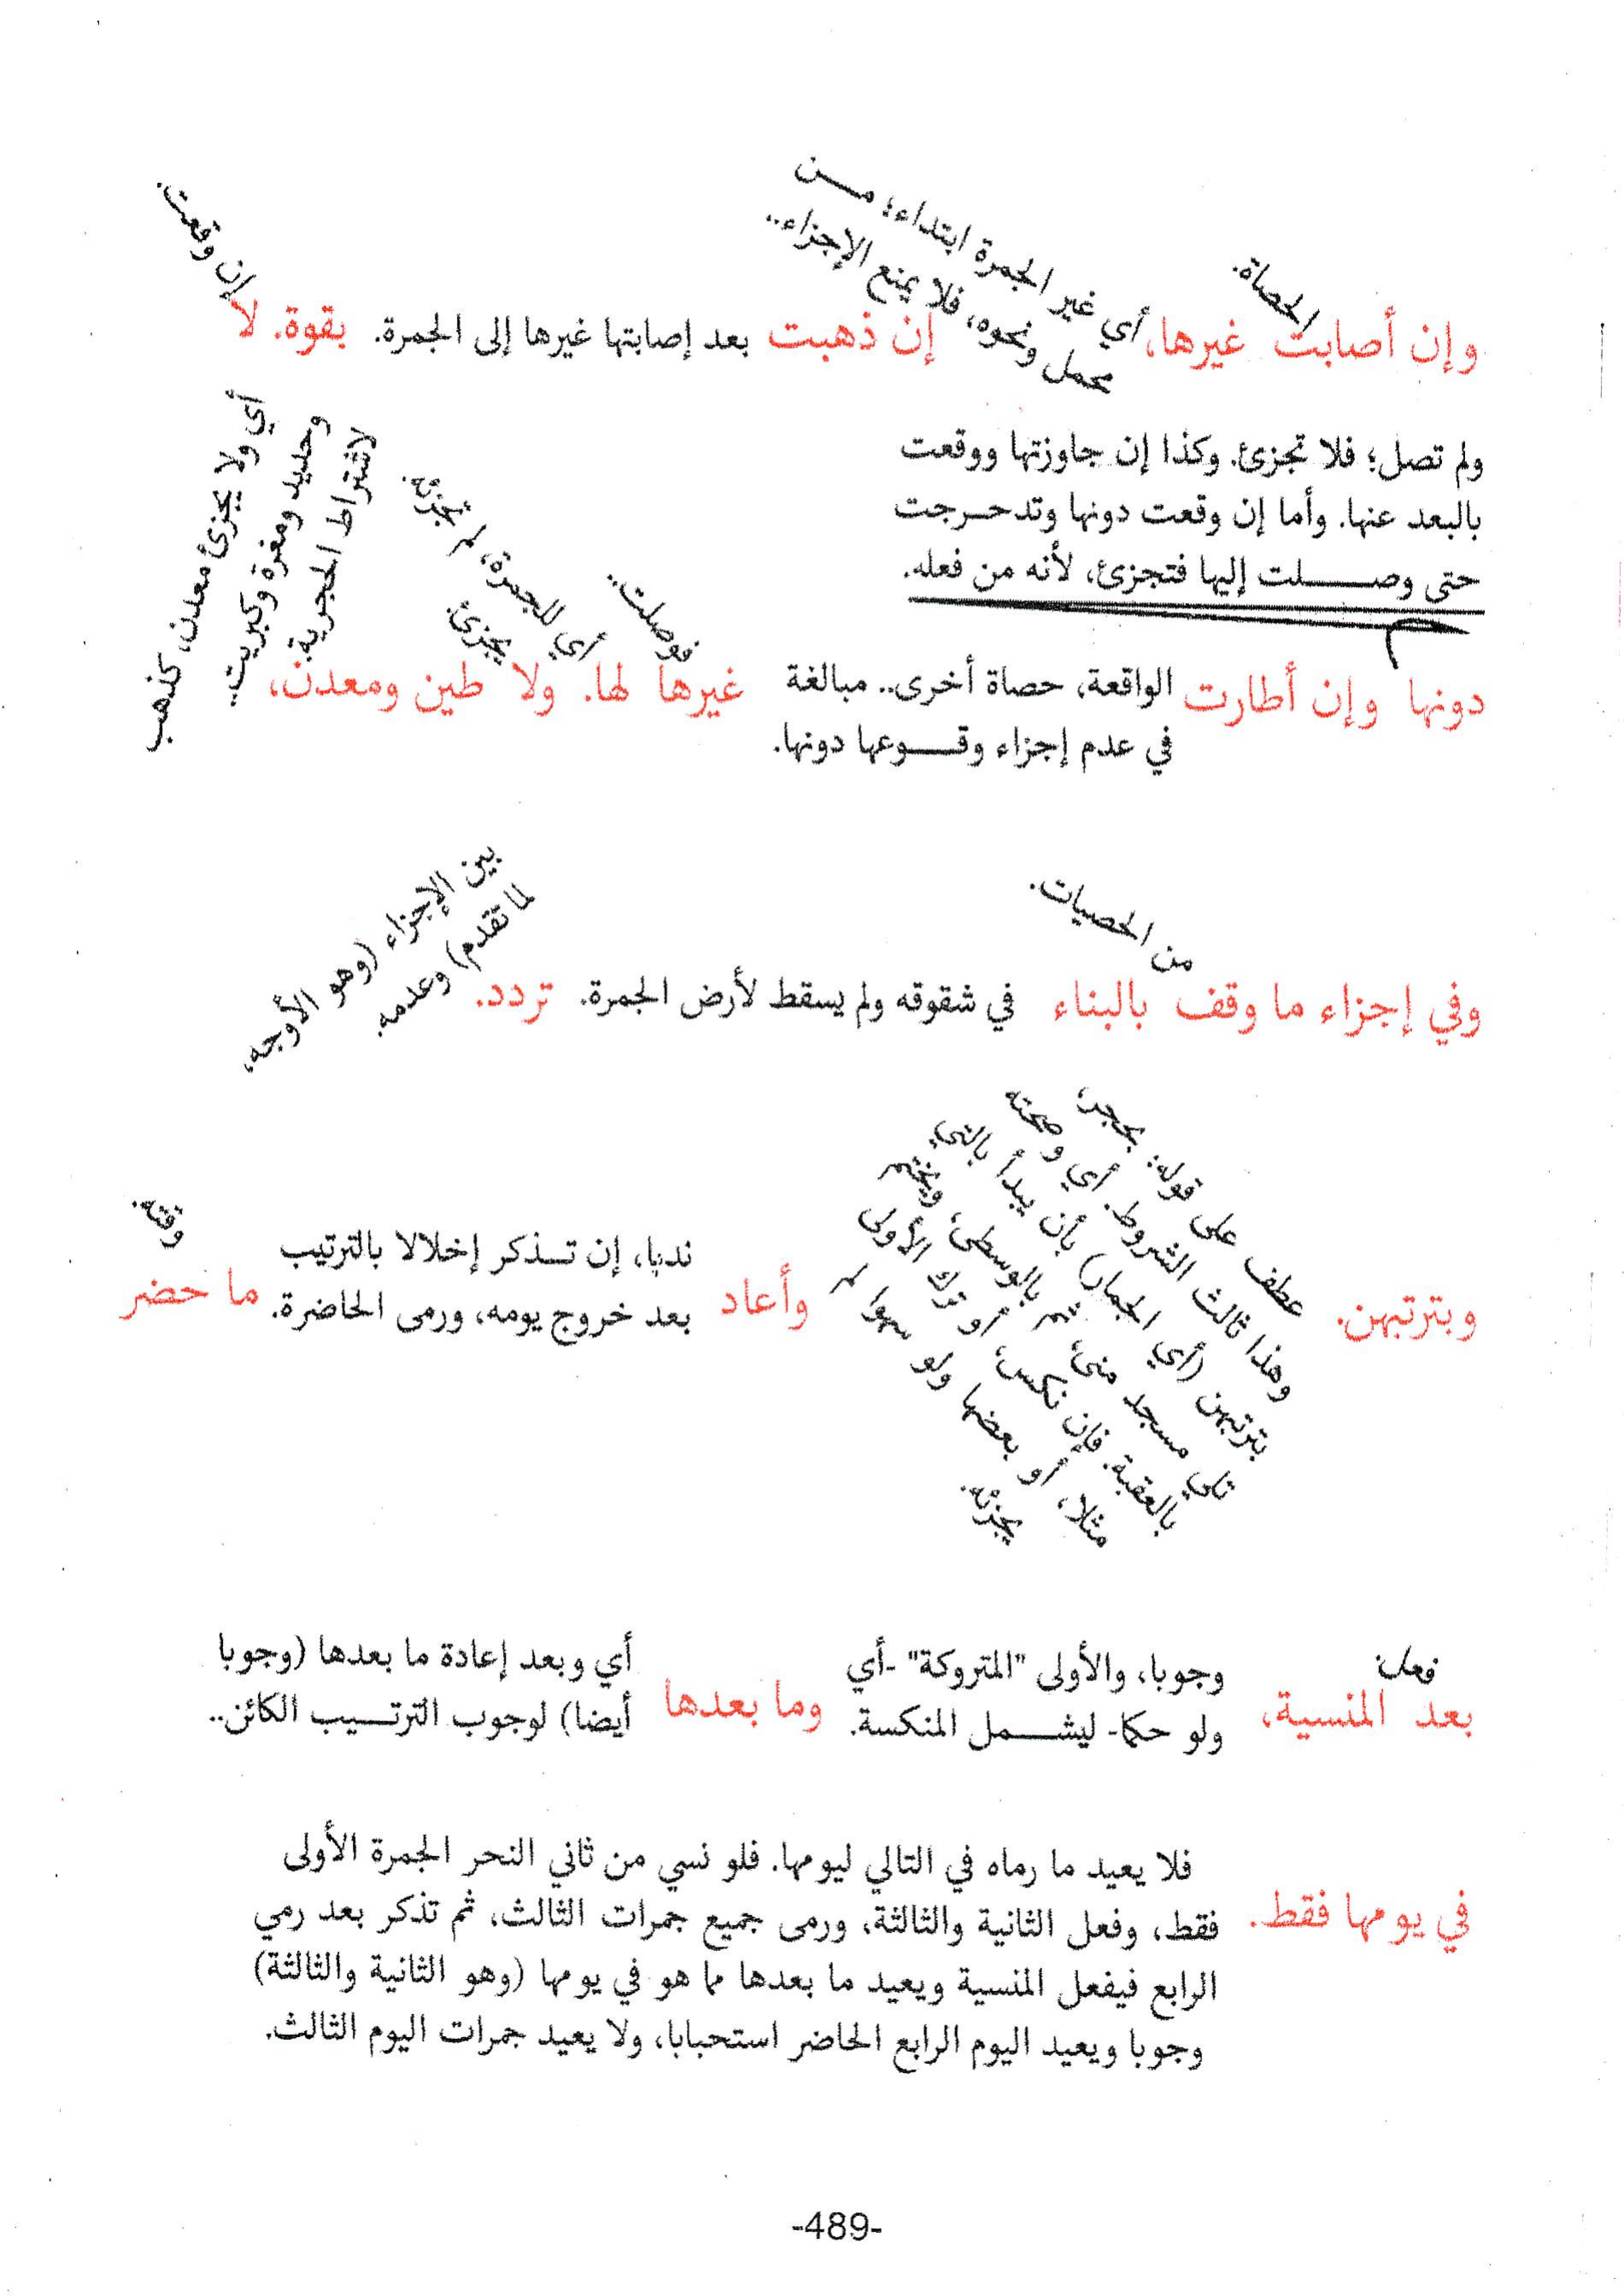 وإن أصابت
الحصاة.
غيرها،
أي غير الجمرة ابتداء؛ مـن
محمل ونحوه، فلا يمنع الإجزاء..
إن ذهبت
بعد إصابتها غيرها إلى الجمرة.
بقوة. لا
إن وقعت.
ولم تصل؛ فلا تجزئ. وكذا إن جاوزتها ووقعت
بالبعد عنها. وأما إن وقعت دونها وتدحـرجت
حتى وصـــلت إليها فتجزئ، لأنه من فعله.
دونها وإن أطارت
الواقعة، حصاة أخرى.. مبالغة
في عدم إجزاء وقـــوعها دونها.
غيرها
فوصلت..
لها.
أي للجمرة، لم تجزئه.
ولا
يجزئ
طين ومعدن،
أي ولا يجزئ معدن، كذهب
وحديد ومغرة وكبريت..
لاشتراط الحجرية.
وفي إجزاء ما وقف
من الحصيات.
بالبناء
في شقوقه ولم يسقط لأرض الجمرة.
تردد.
بين الإجزاء (وهو الأوجه،
لما تقدم) وعدمه.
وبترتبهن.
عطف على قوله: بحجر،
وهذا ثالث الشروط. أي وصحته
بترتبهن (أي الجمار) بأن يبدأ بالتي
تلي مسجد منى، ثم بالوسطى، ويختم
بالعقبة. فإن نكس، أو ترك الأولى
مثلا، أو بعضها ولو سهوا لم
يجزئه.
وأعاد
ندبا، إن تـذكر إخلالا بالترتيب
بعد خروج يومه، ورمى الحاضرة.
ما حضر
وقته.
بعد
فعل:
المنسية،
وجوبا، والأولى "المتروكة" -أي
ولو حكما- ليشـــمل المنكسة.
وما بعدها
أي وبعد إعادة ما بعدها (وجوبا
أيضا) لوجوب الترتـــيب الكائن..
في يومها فقط.
فلا يعيد ما رماه في التالي ليومها. فلو نسي من ثاني النحر الجمرة الأولى
فقط، وفعل الثانية والثالثة، ورمى جميع جمرات الثالث، ثم تذكر بعد رمي
الرابع فيفعل المنسية ويعيد ما بعدها مما هو في يومها (وهو الثانية والثالثة)
وجوبا ويعيد اليوم الرابع الحاضر استحبابا، ولا يعيد جمرات اليوم الثالث.
-489-